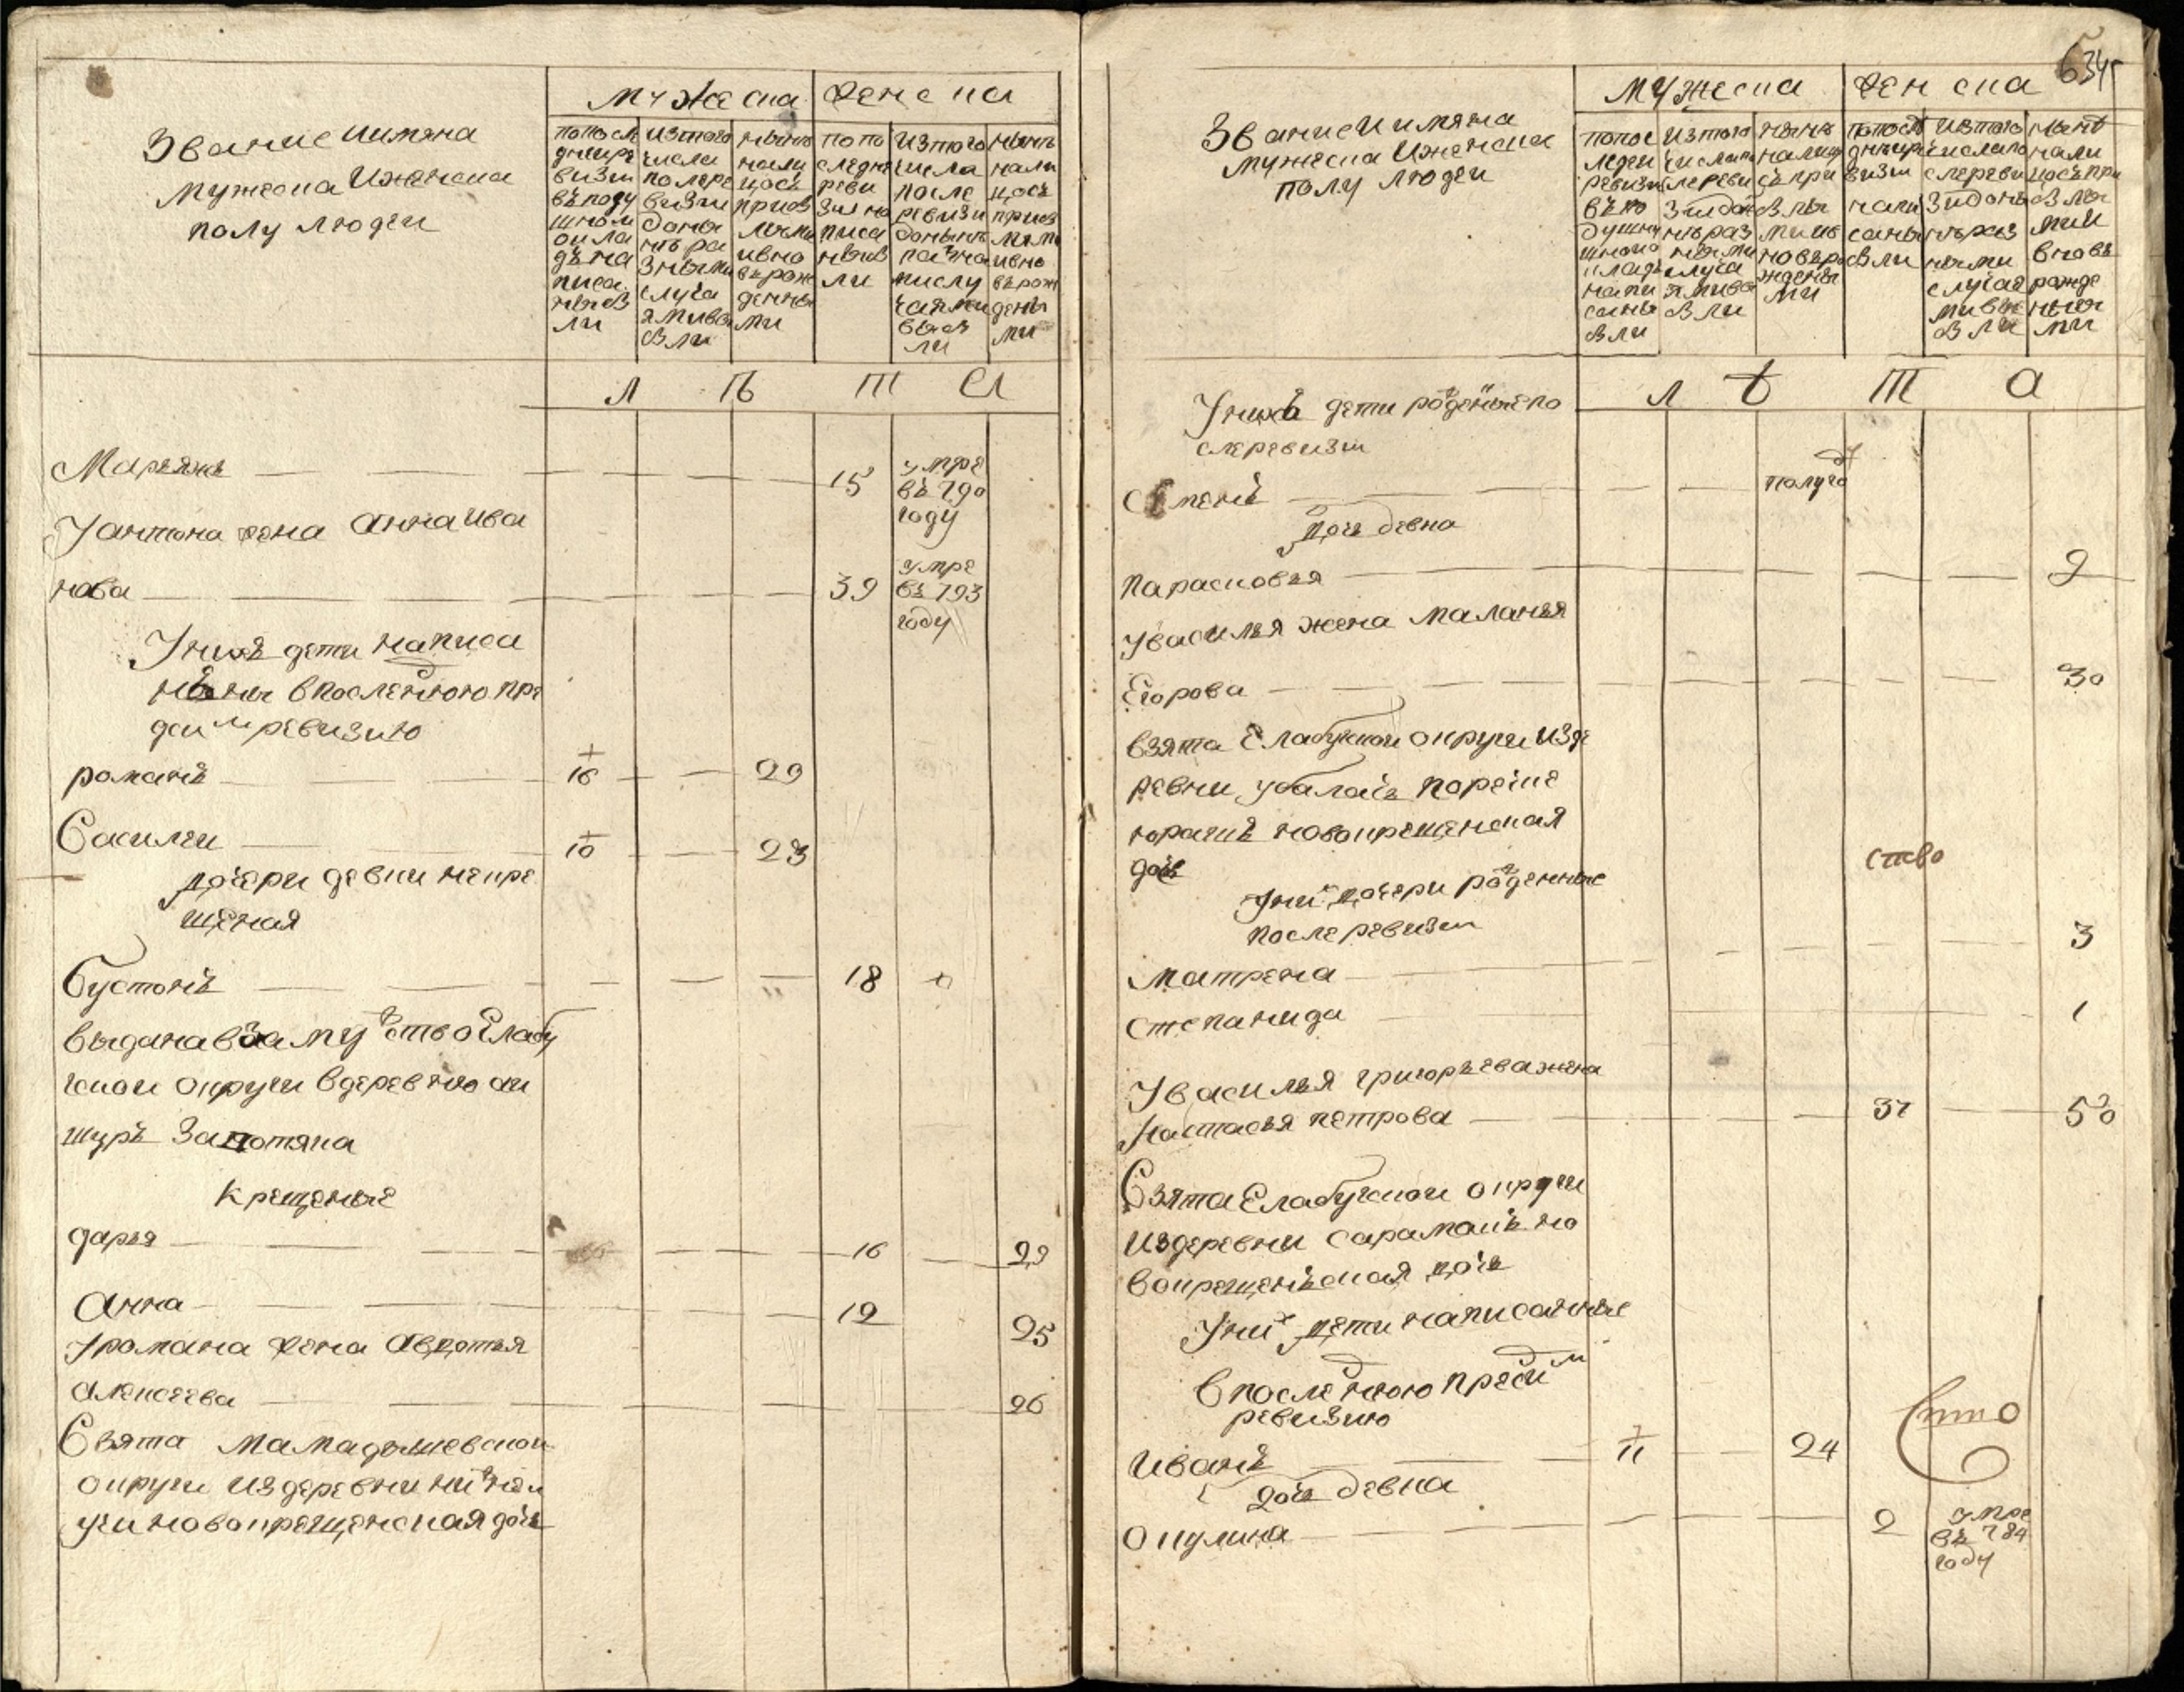 Звание иимяна
мужеска иженска
полу людей
мужеска
женска
попосл
дней ре
визи
въ поду
шном
окла
дѣ на
писа
ныхъ
ли
изтого
числа
после ре
визии
даны
нѣ ра
зными
случа
ями вы
были
нынѣ
нали
цось
прибы
лыми
ивно
вь рож
денны
ми
по по
следне
реви
зии на
писа
ны бы
ли
изтого
числа
после
ревизи
донынѣ
разна
му слу
чаями
выбы
ли
нынѣ
нали
цось
прибы
лыми
ивно
вь рож
дены
ми
л ѣ т а
Марьянъ — 15 умре
въ 790
году
У антона жена Анна ива
нова — 39 умре
въ 793
году
У нихъ дети написа
нныя впоследнюю пре
деим ревизию
романъ — 16 — 29
Василеи — 10 — 23
дочери девки некре
щеная
Бустонъ — 18
выдана взамужство Елабу
жскои округи вдеревню ки
шуръ за вотяка
крещеные
дарья — 16 — 29
Анна — 12 25
У романа жена Авдотья
Алексеева — 26
Взята мамадышевскои
округи издеревни нижнеи
учи новокрещенская дочь
634
Звание и имяна
мужеска иженска
полу людеи
мужеска
женска
попос
ледней
ревизи
въ по
душно
шного
оклад
напи
саны
были
изтого
числа по
сле реви
зии до
нѣ раз
ными
случа
ями вы
были
нынѣ
налиц
сь при
былы
ми ив
новь ро
ждены
ми
попосл
дней ре
визии
напи
саны
были
изтого
числа по
сле реви
зии доны
нѣ раз
ными
случая
ми вы
были
нынѣ
нали
цось при
былы
ми и
вновь
рожде
нны
ми
л ѣ т а
У нихъ дети рожденые по
сле ревизи
Семенъ — полуго
дочь девка
парасковья — 2
У василья жена маланья
Егорова — 30
взята Елабужскои округи изде
ревни убалась порече
юрашъ новокрещенская
дочь
ство
У них дочери рожденные
после ревизи
матрена — 3
степанида — 1
У василья григорьева жена
Настасья петрова — 37 — 50
Взята Елабужскои округи
издеревни сарамакъ но
вокрещенская дочь
У них дети написанные
впоследнюю пред сим
ревизию
Иванъ — 11 — 24
дочь девка
окулина — 2 умре
въ 784
году